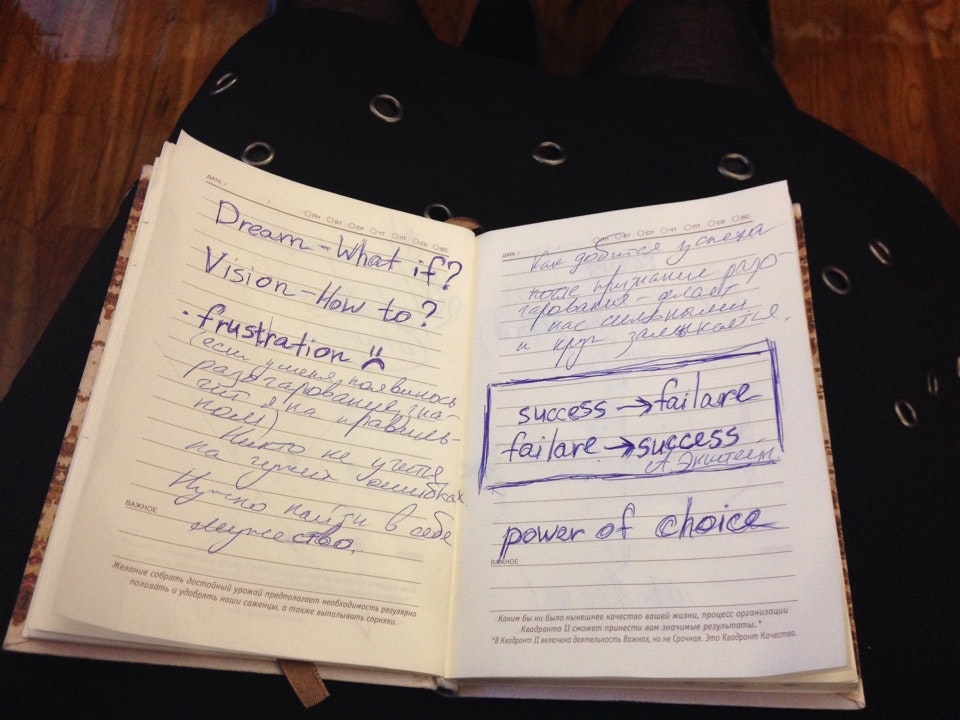 ДАТА /
ПН ВТ СР ЧТ ПТ СБ ВС
Dream - What if?
Vision - How to?
· frustration
(если у меня появилось
разочарование, зна-
чит я на правиль-
ном)
Никто не учится
на чужих ошибках
Нужно найти в себе
мужество.
ВАЖНОЕ
Желание собрать достойный урожай предполагает необходимость регулярно
поливать и удобрять наши саженцы, а также выпалывать сорняки.
ДАТА /
ПН ВТ СР ЧТ ПТ СБ ВС
Как добится успеха
после признание разо-
чарования - делает
нас сильными
и круг замыкается.
success → failare
failare → success
А. Энштейн
power of choice
ВАЖНОЕ
Каким бы ни было нынешнее качество вашей жизни, процесс организации
Квадранта II сможет принести вам значимые результаты.*
*В Квадрант II включена деятельность Важная, но не Срочная. Это Квадрант Качества.